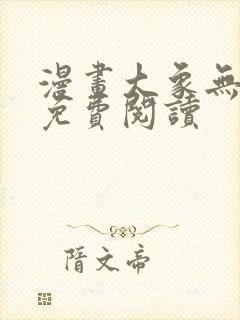 漫畫大象無
免費閱讀
隋文帝